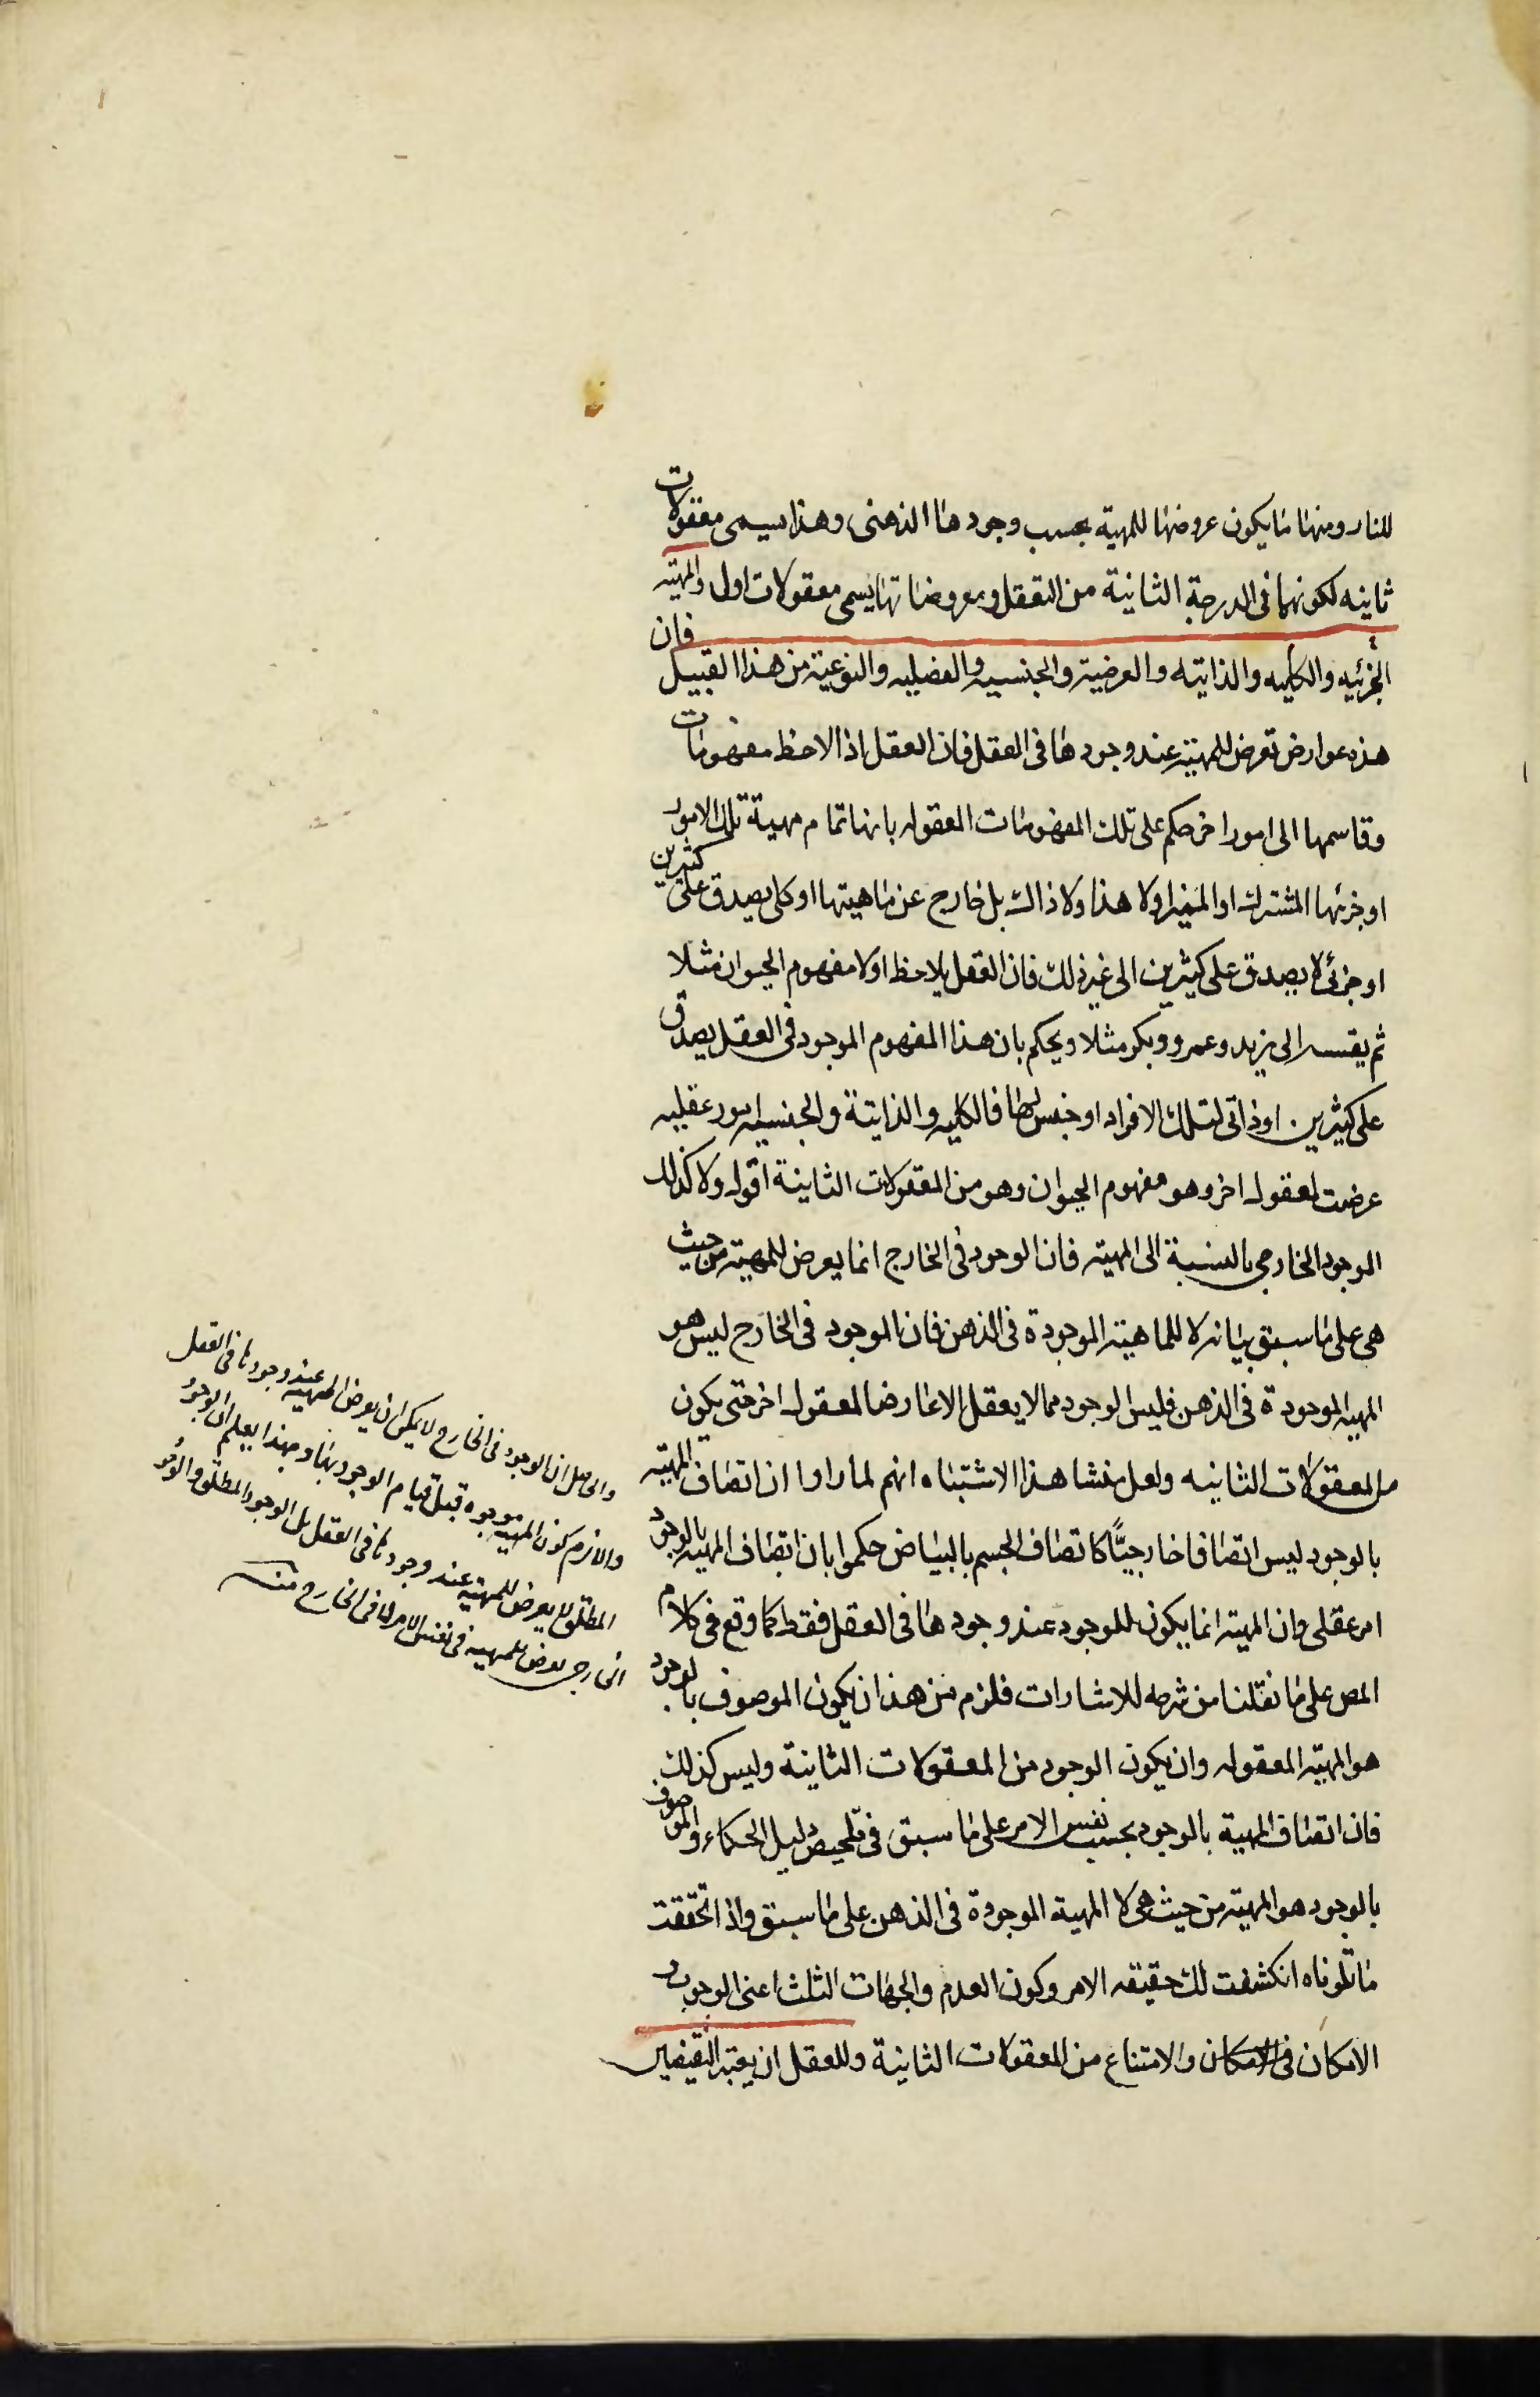 للنار ومنها ما يكون عروضها للمهية بحسب وجودها الذهنى وهذا يسمى معقولات
ثانيه لكونها فى الدرجة الثانية من التعقل ومعروضاتها يسمى معقولات اولى والمهية
الجزئيه والكليه والذاتيه والعرضية والجنسيه والفصليه والنوعية من هذا القبيل فان
هذه عوارض تعرض للمهية عند وجودها فى العقل فان العقل اذا لاحظ مفهومات
وقاسمها الى امور اخر حكم على تلك المفهومات المعقوله بانها تمام مهية تلك الامور
او جزئها المشترك او المميز او لا هذا ولا ذاك بل خارج عن ماهيتها او كلى يصدق على كثيرين
او جزئى لا يصدق على كثيرين الى غير ذلك فان العقل يلاحظ اولا مفهوم الحيوان مثلا
ثم يقسه الى زيد وعمرو وبكر مثلا ويحكم بان هذا المفهوم الموجود فى العقل يصدق
على كثيرين او ذاتى لتلك الافراد او جنس لها فالكليه والذاتية والجنسيه امور عقليه
عرضت لمعقول اخر وهو مفهوم الحيوان وهو من المعقولات الثانية اقول ولا كذلك
الوجود الخارجى بالنسبة الى المهية فان الوجود فى الخارج انما يعرض للمهية من حيث
هى على ما سبق بيانه لا للماهية الموجودة فى الذهن فان الموجود فى الخارج ليس هو
المهيه الموجودة فى الذهن فليس الوجود مما لا يعقل الا عارضا لمعقول اخر حتى يكون
من المعقولات الثانيه ولعل منشا هذا الاشتباه انهم لما راوا ان اتصاف المهية
بالوجود ليس اتصافا خارجيًّا كاتصاف الجسم بالبياض حكموا بان اتصاف المهيه بالوجود
امر عقلى وان المهية انما يكون للوجود عند وجودها فى العقل فقط كما وقع فى كلام
المص على ما نقلنا من شرحه للاشارات فلزم من هذا ان يكون الموصوف بالوجود
هو المهية المعقوله وان يكون الوجود من المعقولات الثانية وليس كذلك
فان اتصاف المهية بالوجود بحسب نفس الامر على ما سبق فى تلخيص دليل الحكماء والموصوف
بالوجود هو المهية من حيث هى لا المهية الموجودة فى الذهن على ما سبق واذا تحققت
ما تلوناه انكشفت لك حقيقه الامر وكون العدم والجهات الثلث اعنى الوجوب و
الامكان فى الامكان والامتناع من المعقولات الثانية وللعقل ان يعتبر النقيضين
والحاصل ان الوجود فى الخارج لا يمكن ان يعرض المهية عند وجودها فى العقل
والا لزم كون المهية موجوده قبل قيام الوجود بها وبهذا يعلم ان الوجود
المطلق لا يعرض للمهية عند وجودها فى العقل بل الوجود المطلق والوجود
الخارجى يعرض للمهية فى نفس الامر لا فى الخارج منه